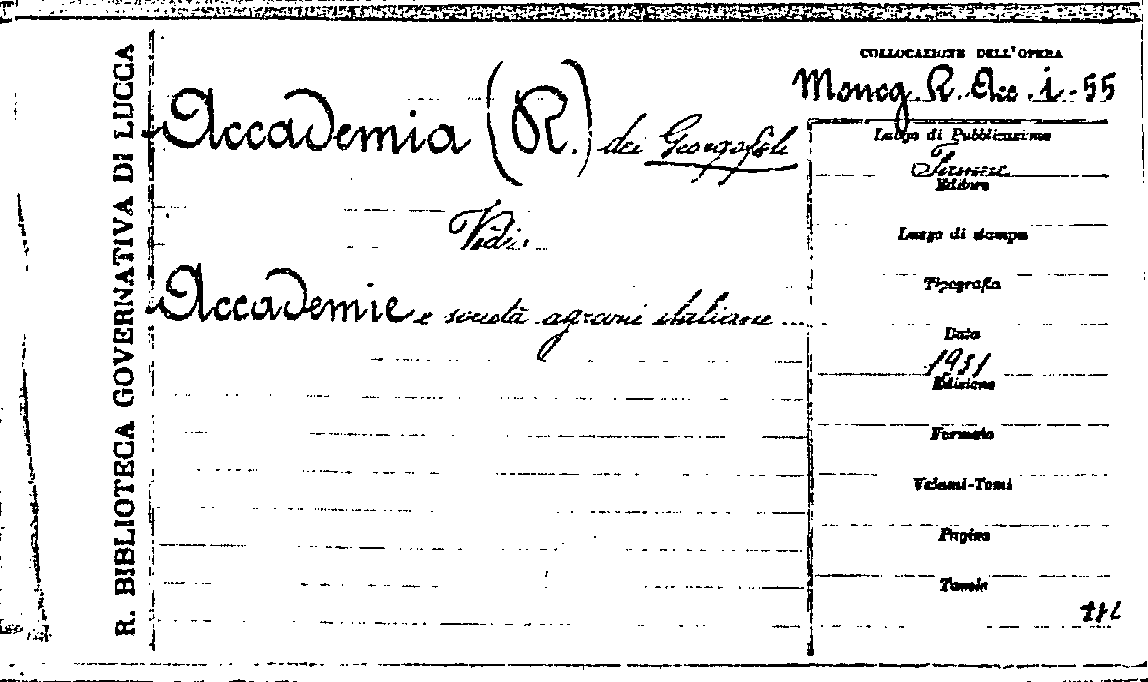 R. BIBLIOTECA GOVERNATIVA DI LUCCA
Accademia (R.) dei Georgofili
Vedi:
Accademie e società agrarie italiane
COLLOCAZIONE DELL'OPERA
Monog. R. Acc. i-55
Luogo di Pubblicazione
Firenze
Editore
Luogo di stampa
Tipografia
Data
1931
Edizione
Formato
Volumi-Tomi
Pagine
Tavole